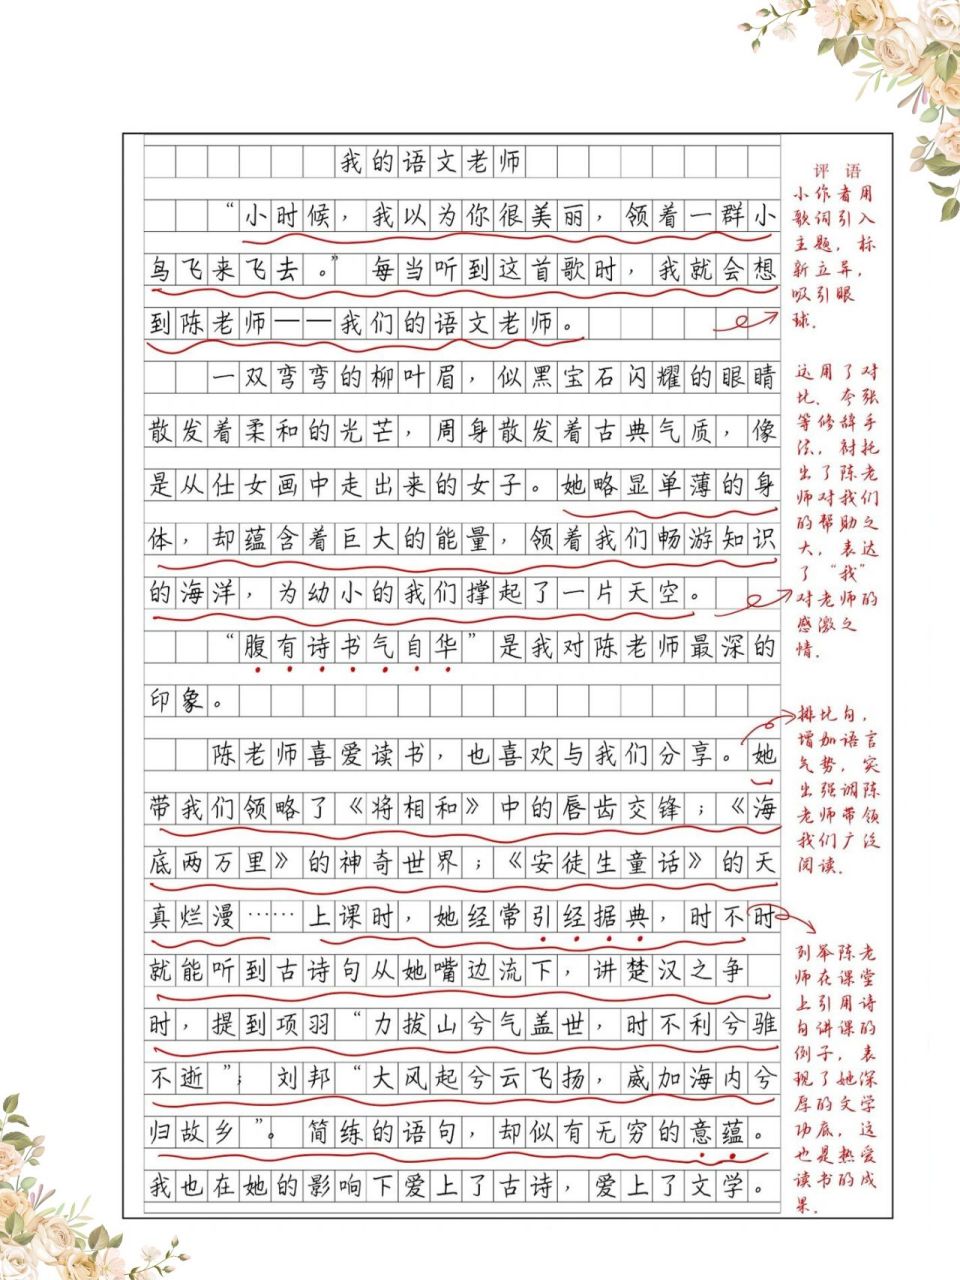 我的语文老师
“小时候，我以为你很美丽，领着一群小
鸟飞来飞去。”每当听到这首歌时，我就会想
到陈老师——我们的语文老师。
一双弯弯的柳叶眉，似黑宝石闪耀的眼睛
散发着柔和的光芒，周身散发着古典气质，像
是从仕女画中走出来的女子。她略显单薄的身
体，却蕴含着巨大的能量，领着我们畅游知识
的海洋，为幼小的我们撑起了一片天空。
“腹有诗书气自华”是我对陈老师最深的
印象。
陈老师喜爱读书，也喜欢与我们分享。她
带我们领略了《将相和》中的唇齿交锋；《海
底两万里》的神奇世界；《安徒生童话》的天
真烂漫……上课时，她经常引经据典，时不时
就能听到古诗句从她嘴边流下，讲楚汉之争
时，提到项羽“力拔山兮气盖世，时不利兮骓
不逝”；刘邦“大风起兮云飞扬，威加海内兮
归故乡”。简练的语句，却似有无穷的意蕴。
我也在她的影响下爱上了古诗，爱上了文学。
评语
小作者用
歌词引入
主题，标
新立异，
吸引眼
球．
这用了对
比、夸张
等修辞手
法，衬托
出了陈老
师对我们
的帮助之
大，表达
了“我”
对老师的
感激之
情．
排比句，
增加语言
气势，突
出强调陈
老师带领
我们广泛
阅读．
列举陈老
师在课堂
上引用诗
句讲课的
例子，表
现了她深
厚的文学
功底，这
也是热爱
读书的成
果．